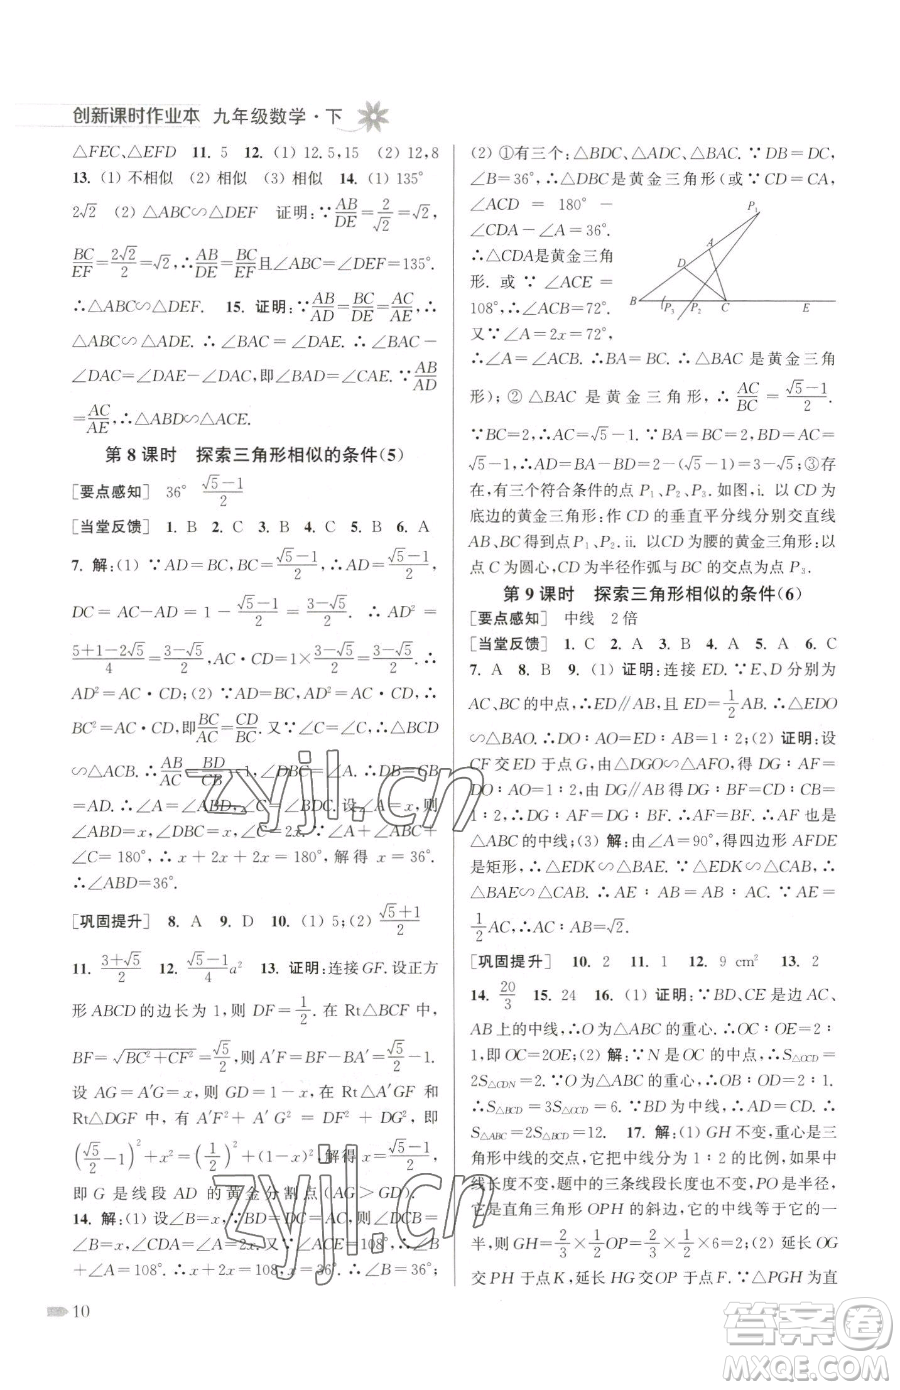 创新课时作业本 九年级数学·下
△FEC、△EFD 11. 5 12. (1) 12.5,15 (2) 12,8
13. (1) 不相似 (2) 相似 (3) 相似 14. (1) 135°
2√2 (2) △ABC∽△DEF 证明:∵AB/DE=2/√2=√2,
BC/EF=2√2/2=√2,∴AB/DE=BC/EF且∠ABC=∠DEF=135°.
∴△ABC∽△DEF. 15. 证明:∵AB/AD=BC/DE=AC/AE,∴
△ABC∽△ADE. ∴∠BAC=∠DAE. ∴∠BAC-
∠DAC=∠DAE-∠DAC,即∠BAD=∠CAE. ∵AB/AD
=AC/AE,∴△ABD∽△ACE.
第 8 课时 探索三角形相似的条件(5)
[要点感知] 36° (√5-1)/2
[当堂反馈] 1. B 2. C 3. C 4. B 5. B 6. A
7. 解:(1) ∵AD=BC,BC=(√5-1)/2,∴AD=(√5-1)/2,
DC=AC-AD=1-(√5-1)/2=(3-√5)/2. ∴AD²=
(5+1-2√5)/4=(3-√5)/2,AC·CD=1×(3-√5)/2=(3-√5)/2. ∴
AD²=AC·CD;(2) ∵AD=BC,AD²=AC·CD,∴
BC²=AC·CD,即BC/AC=CD/BC. 又∵∠C=∠C,∴△BCD
∽△ACB. ∴AB/AC=BD/CB,∠DBC=∠A. ∴DB=CB
=AD. ∴∠A=∠ABD,∠C=∠BDC. 设∠A=x,则
∠ABD=x,∠DBC=x,∠C=2x. ∵∠A+∠ABC+
∠C=180°,∴x+2x+2x=180°,解得 x=36°.
∴∠ABD=36°.
[巩固提升] 8. A 9. D 10. (1) 5;(2) (√5+1)/2
11. (3+√5)/2 12. (√5-1)/4 a² 13. 证明:连接GF. 设正方
形 ABCD 的边长为 1,则 DF=1/2. 在 Rt△BCF 中,
BF=√(BC²+CF²)=√5/2,则 A′F=BF-BA′=√5/2-1.
设 AG=A′G=x,则 GD=1-x,在 Rt△A′GF 和
Rt△DGF 中,有 A′F²+A′G²=DF²+DG²,即
(√5/2-1)²+x²=(1/2)²+(1-x)²,解得 x=(√5-1)/2,
即 G 是线段 AD 的黄金分割点(AG>GD).
14. 解:(1) 设∠B=x,∵BD=DC=AC,∴∠DCB=
∠B=x,∠CDA=∠A=2x. 又∵∠ACE=108°,∴∠B+
∠A=108°. ∴x+2x=108°,解得 x=36°. ∴∠B=36°;
(2) ①有三个:△BDC、△ADC、△BAC. ∵DB=DC,
∠B=36°,∴△DBC是黄金三角形(或∵CD=CA,
∠ACD = 180° -
∠CDA-∠A=36°.
∴△CDA是黄金三角
形. 或 ∵∠ACE =
108°,∴∠ACB=72°.
又∵∠A=2x=72°,
∴∠A=∠ACB. ∴△BAC 是黄金三角
形);②△BAC 是黄金三角形,∴AC/BC=(√5-1)/2.
∵BC=2,∴AC=√5-1. ∵BA=BC=2,BD=AC=
√5-1,∴AD=BA-BD=2-(√5-1)=3-√5;③存
在,有三个符合条件的点 P₁、P₂、P₃. 如图,i. 以 CD 为
底边的黄金三角形:作 CD 的垂直平分线分别交直线
AB、BC 得到点 P₁、P₂. ii. 以 CD 为腰的黄金三角形:以
点 C 为圆心,CD为半径作弧与 BC 的交点为点 P₃.
P₁
A
D
B
P₃
P₂
C
E
第 9 课时 探索三角形相似的条件(6)
[要点感知] 中线 2 倍
[当堂反馈] 1. C 2. A 3. B 4. B 5. A 6. C
7. A 8. B 9. (1) 证明:连接 ED. ∵E、D 分别为
AC、BC 的中点,∴ED∥AB,且 ED=1/2AB. ∴△EDO
∽△BAO. ∴DO:AO=ED:AB=1:2;(2) 证明:设
CF 交 ED 于点 G,由△DGO∽△AFO,得 DG:AF=
DO:AO=1:2,由 DG∥AB,得 DG:BF=CD:CB=
1:2,∴DG:AF=DG:BF. ∴AF=BF. ∴CF 也是
△ABC 的中线;(3) 解:由∠A=90°,得四边形 AFDE
是矩形,∴△EDK∽△BAE. ∵△EDK∽△CAB,∴
△BAE∽△CAB. ∴AE:AB=AB:AC. ∵AE=
1/2AC,∴AC:AB=√2.
[巩固提升] 10. 2 11. 1 12. 9 cm² 13. 2
14. 20/3 15. 24 16. (1) 证明:∵BD、CE 是边 AC、
AB 上的中线,∴O 为△ABC 的重心. ∴OC:OE=2:
1,即 OC=2OE;(2) 解:∵N 是 OC 的中点,∴S△OCD=
2S△CDN=2. ∵O为△ABC 的重心,∴BD:OD=3:1.
∴S△BCD=3S△OCD=6. ∵BD 为中线,∴AD=CD. ∴
S△ABC=2S△BCD=12. 17. 解:(1) GH 不变,重心是三
角形中线的交点,它把中线分为 1:2 的比例,如果中
线长度不变,题中的三条线段长度也不变,PO 是半径,
它是直角三角形 OPH 的斜边,它的中线等于它的一
半,GH=2/3×1/2OP=2/3×1/2×6=2;(2) 延长 OG
交 PH 于点 K,延长 HG 交 OP 于点 L. ∵△PGH 为直
10
zyjl.cn
zyjl.cn
答案圈
MXQE.COM